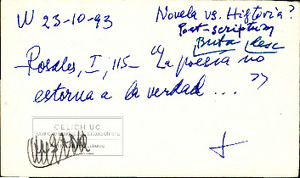 W 23-10-93
Novela vs. Historia?
Post-scriptum
Rosales, I, 115- "La poesía no
estorna a la verdad ... "
CELICH UC